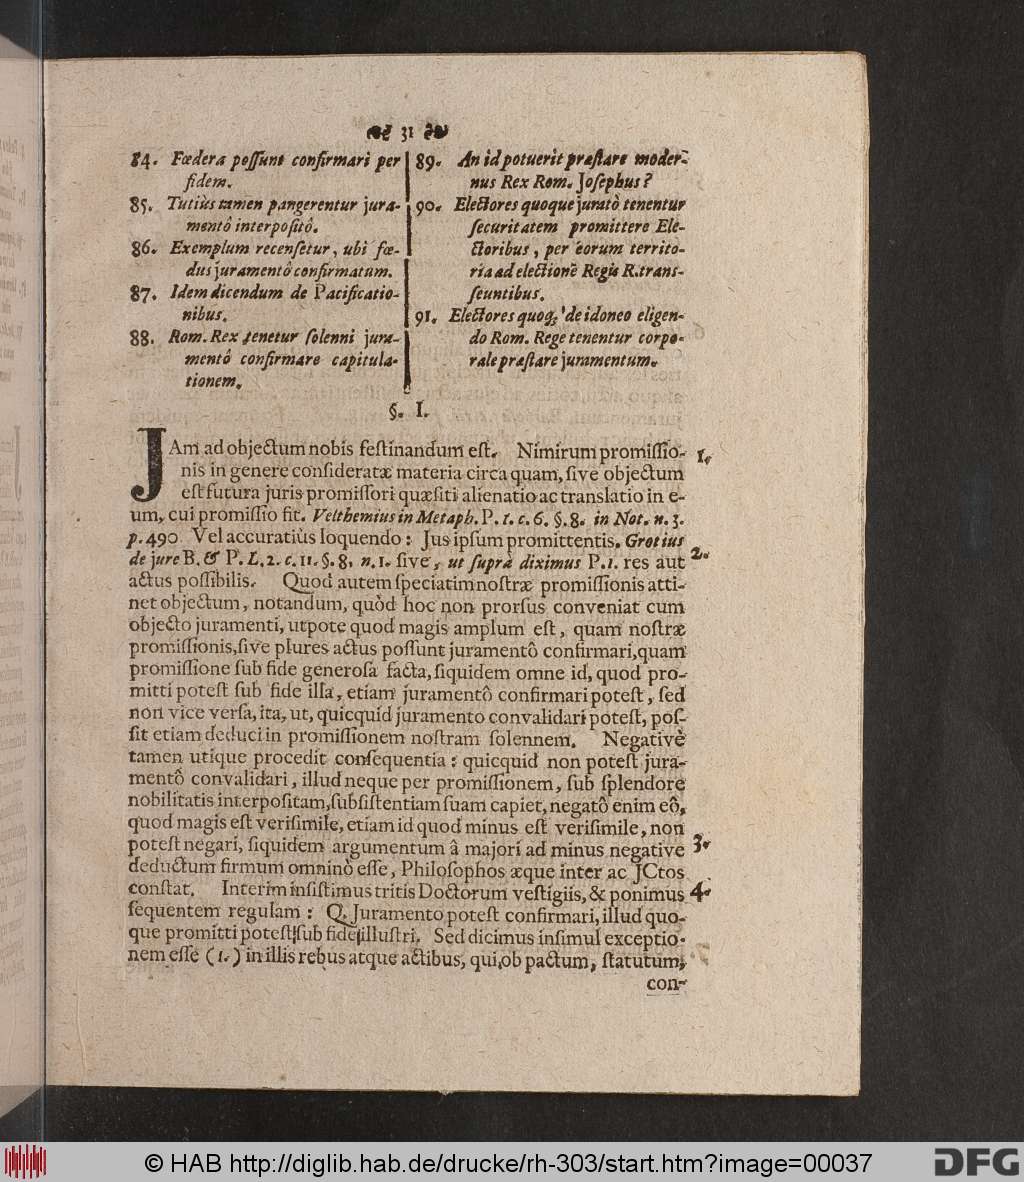 31
84. Fœdera poſſunt confirmari per
fidem.
85. Tutiùs tamen pangerentur jura-
mentô interpoſitô.
86. Exemplum recenſetur, ubi fœ-
dus juramentô confirmatum.
87. Idem dicendum de Pacificatio-
nibus.
88. Rom. Rex tenetur ſolenni jura-
mentô confirmare capitula-
tionem.
89. An id potuerit præſtare moder-
nus Rex Rom. Joſephus?
90. Electores quoque juratò tenentur
ſecuritatem promittere Ele-
ctoribus, per eorum territo-
ria ad electionē Regis R. trans-
ſeuntibus.
91. Electores quoq; de idoneo eligen-
do Rom. Rege tenentur corpo-
rale præſtare juramentum.
§. I.
JAm ad objectum nobis feſtinandum eſt. Nimirum promiſſio- 1.
nis in genere conſideratæ materia circa quam, ſive objectum
eſt futura juris promiſſori quæſiti alienatio ac translatio in e-
um, cui promiſſio fit. Velthemius in Metaph. P. 1. c. 6. §. 8. in Not. n. 3.
p. 490 Vel accuratiùs loquendo: Jus ipſum promittentis. Grotius
de jure B. & P. L. 2. c. 11. §. 8. n. 1. ſive, ut ſuprà diximus P. 1. res aut 2.
actus poſſibilis. Quod autem ſpeciatim noſtræ promiſſionis atti-
net objectum, notandum, quòd hoc non prorſus conveniat cum
objecto juramenti, utpote quod magis amplum eſt, quam noſtræ
promiſſionis, ſive plures actus poſſunt juramentô confirmari, quam
promiſſione ſub fide generoſa facta, ſiquidem omne id, quod pro-
mitti poteſt ſub fide illa, etiam juramentô confirmari poteſt, ſed
non vice verſa, ita, ut, quicquid juramento convalidari poteſt, poſ-
ſit etiam deduci in promiſſionem noſtram ſolennem. Negativè
tamen utique procedit conſequentia: quicquid non poteſt jura-
mentô convalidari, illud neque per promiſſionem, ſub ſplendore
nobilitatis interpoſitam, ſubſiſtentiam ſuam capiet, negatô enim eô,
quod magis eſt veriſimile, etiam id quod minus eſt veriſimile, non
poteſt negari, ſiquidem argumentum â majori ad minus negative 3.
deductum firmum omninò eſſe, Philoſophos æque inter ac JCtos
conſtat. Interim inſiſtimus tritis Doctorum veſtigiis, & ponimus 4.
ſequentem regulam: Q. Juramento poteſt confirmari, illud quo-
que promitti poteſt ſub fide illuſtri. Sed dicimus inſimul exceptio-
nem eſſe (1.) in illis rebus atque actibus, qui, ob pactum, ſtatutum,
con-
© HAB http://diglib.hab.de/drucke/rh-303/start.htm?image=00037
DFG